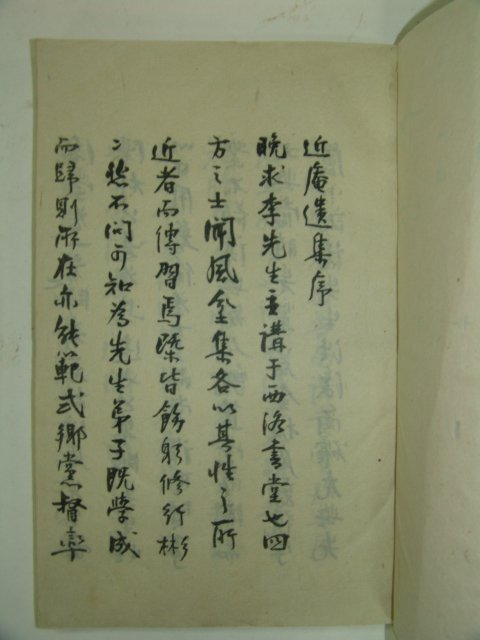 近庵遺集序
晩求李先生主講于西洛書堂也四
方之士聞風坌集各以其性之所
近者而傳習焉槩皆飭躬修行彬
〻然不問可知為先生弟子既學成
而歸則所在亦能範式鄉黨督率